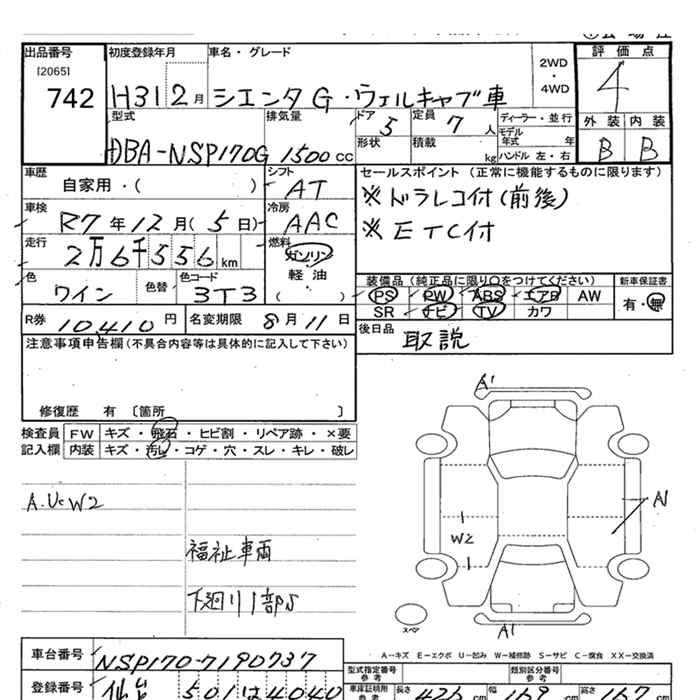 出品番号 初度登録年月 車名・グレード 評価点
[2065]
742 H31 2月 シエンタ G・ウェルキャブ車 2WD・4WD 4
型式 排気量 ドア 定員 ディーラー・並行 外装 内装
5 7人 モデル年式 年
形状 積載 kg ハンドル 左・右 B B
DBA-NSP170G 1500cc
車歴 シフト セールスポイント (正常に機能するものに限ります)
自家用・( ) AT ※ドラレコ付(前後)
車検 冷房
R7年12月(5日) AAC ※ETC付
走行 燃料
2万6千556km ガソリン
軽油
( )
色 色替 色コード 装備品 (純正品に限り○をつけてください) 新車保証書
ワイン 3T3 PS PW ABS エアB AW 有・無
SR ナビ TV カワ
R券 10,410円 名変期限 8月11日 後日品 取説
注意事項申告欄(不具合内容等は具体的に記入して下さい)
修復歴 有 〔箇所 〕
検査員 FW キズ・飛石・ヒビ割・リペア跡・×要
記入欄 内装 キズ・汚レ・コゲ・穴・スレ・キレ・破レ
A'
A.U.W2
A1
W2
福祉車両
下廻り1部S
スペア
A1
A-キズ E-エクボ U-凹み W-補修跡 S-サビ C-腐食 XX-交換済
車台番号 NSP170-7190737
型式指定番号 参考 類別区分番号 参考
登録番号 仙台 501 4040
車庫証明用 参考 長さ 423cm 幅 169cm 高さ 167cm